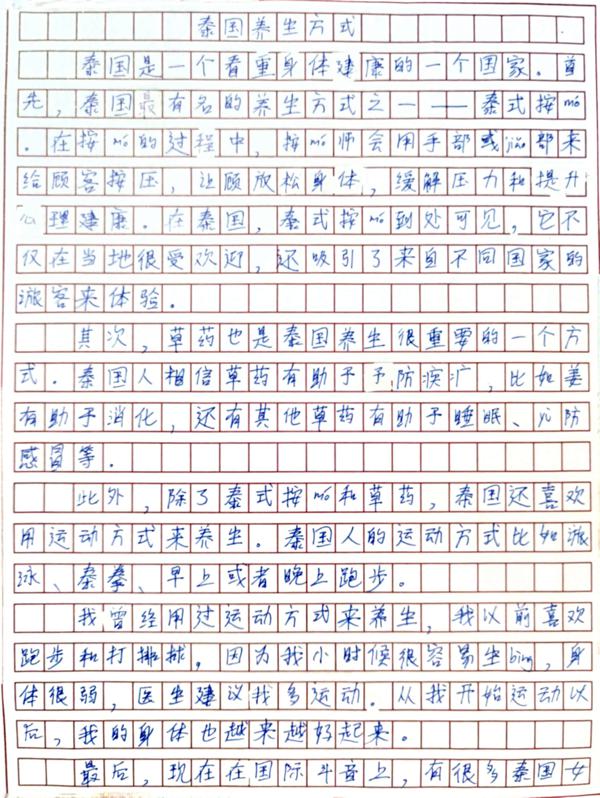 泰国养生方式
泰国是一个看重身体建康的一个国家。首
先，泰国最有名的养生方式之一——泰式按mó
。在按mó的过程中，按mó师会用手部或jiǎo部来
给顾客按压，让顾放松身体，缓解压力和提升
心理建康。在泰国，泰式按mó到处可见，它不
仅在当地很受欢迎，还吸引了来自不同国家的
游客来体验。
其次，草药也是泰国养生很重要的一个方
式。泰国人相信草药有助于予防疾疒，比如姜
有助于消化，还有其他草药有助于睡眠、防
感冒等。
此外，除了泰式按mó和草药，泰国还喜欢
用运动方式来养生。泰国人的运动方式比如游
泳、泰拳、早上或者晚上跑步。
我曾经用过运动方式来养生，我以前喜欢
跑步和打排球，因为我小时候很容易生bìng，身
体很弱，医生建议我多运动。从我开始运动以
后，我的身体也越来越好起来。
最后，现在在国际斗音上，有很多泰国女